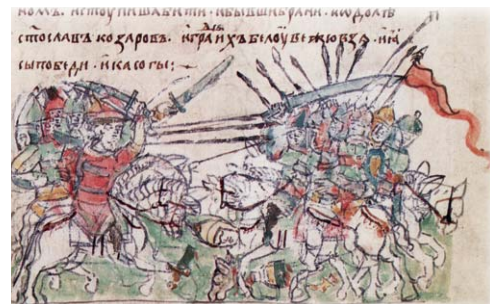 номъ. и стоупиша бити. и бывши брани. и ѡдолѣ
стославъ козаровъ. и градъ ихъ белоу вежю взѧ. и ꙗ
сы победи. и касогы: